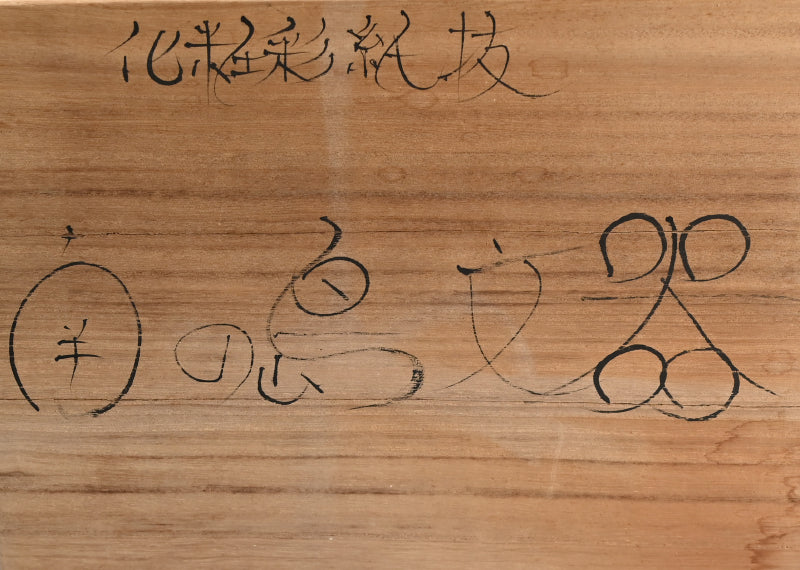 化粧彩紙技
南の島文器